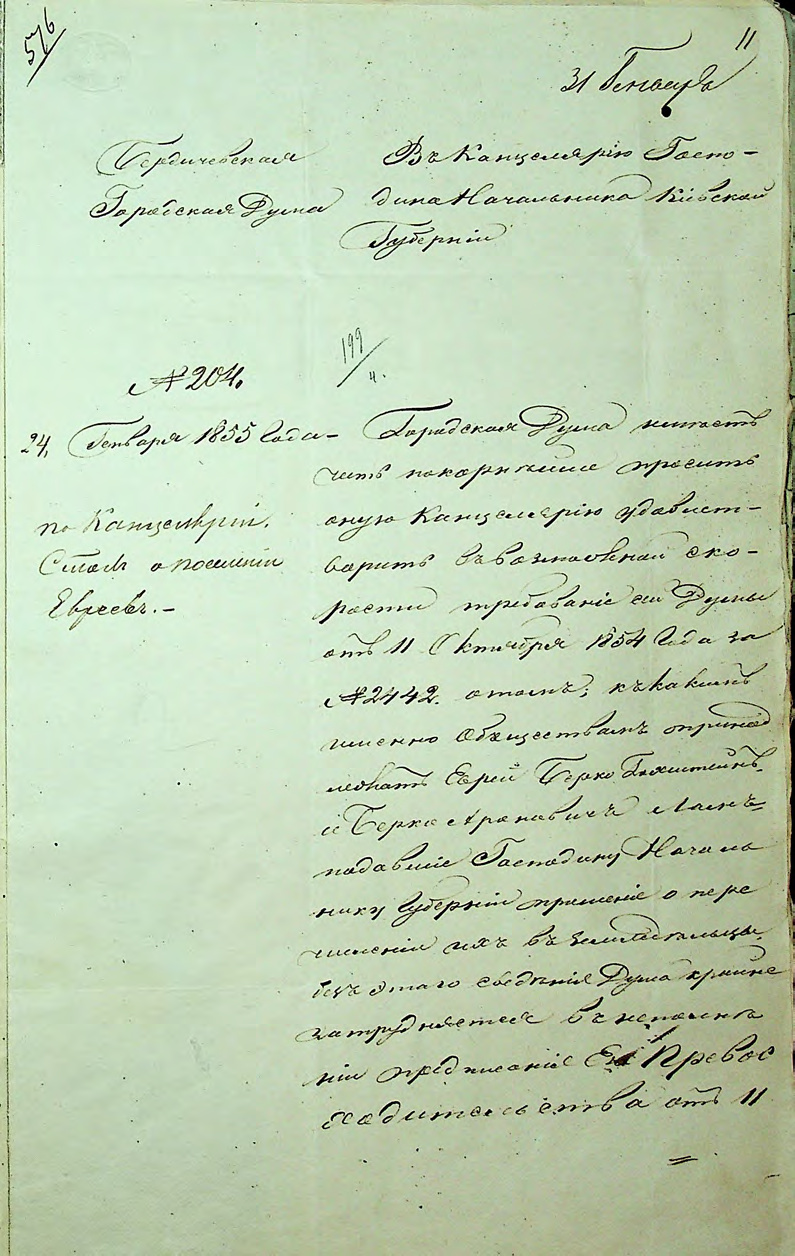 576
11
31 Генваря
Бердичевская
Городская Дума
Въ Канцелярію Госпо-
дина Начальника Кіевской
Губерніи
№ 204.
199/4.
24, Генваря 1855 Года -
по Канцеляріи.
Столъ о поселеніи
Евреевъ. -
Городская Дума имѣетъ
честь покорнѣйше просить
оную Канцелярію удовлет-
ворить въ возможной ско-
рости требованіе сей Думы
отъ 11 Октября 1854 Года за
№ 2442. о томъ; къ какимъ
именно Обществамъ принад
лежатъ Еврей Берко
и Берко Ароновичъ
подавшіе Господину Началь
нику Губерніи прошеніе о пере
численіи ихъ въ земледѣльцы.
безъ этаго свѣдѣнія Дума крайне
затрудняется въ исполне
ніи предписаніе Его Превос
ходительства отъ 11